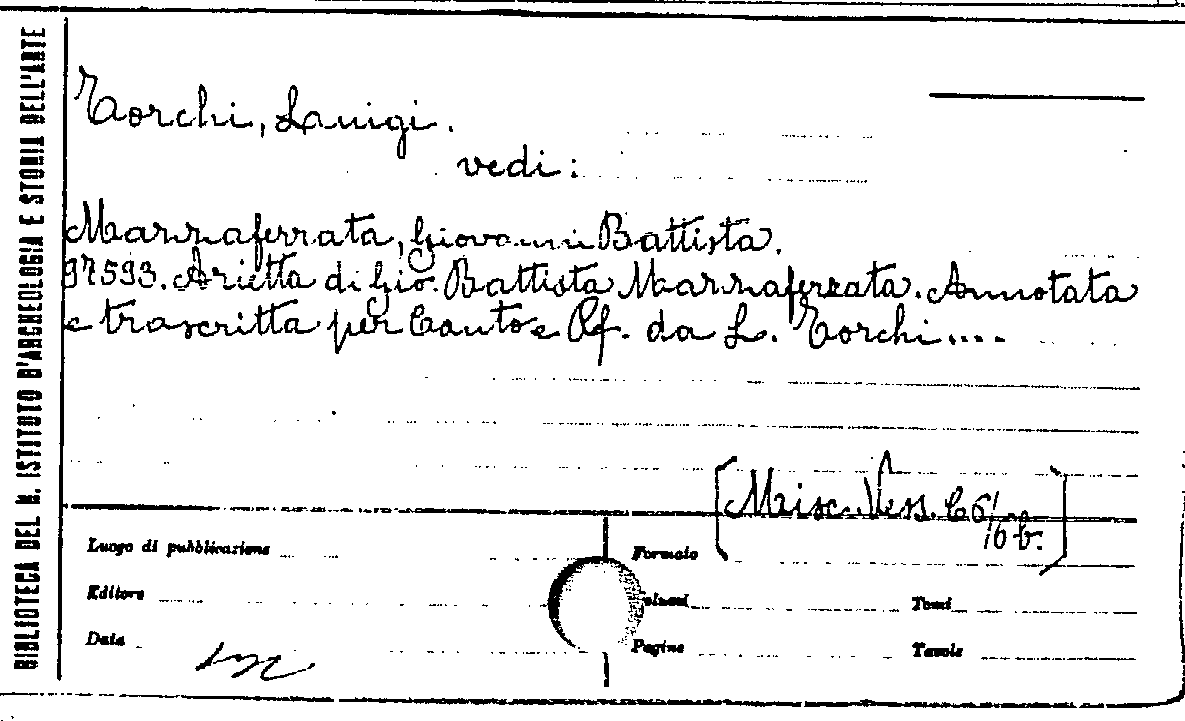 BIBLIOTECA DEL R. ISTITUTO D'ARCHEOLOGIA E STORIA DELL'ARTE
Torchi, Luigi.
vedi:
Mazzaferrata, Giovanni Battista.
97593. Arietta di Gio. Battista Mazzaferrata. Annotata
e trascritta per Canto e Pf. da L. Torchi....
[Misc. Vess. C6/16 b.]
Luogo di pubblicazione
Formato
Editore
Volumi
Tomi
Data
Pagine
Tavole